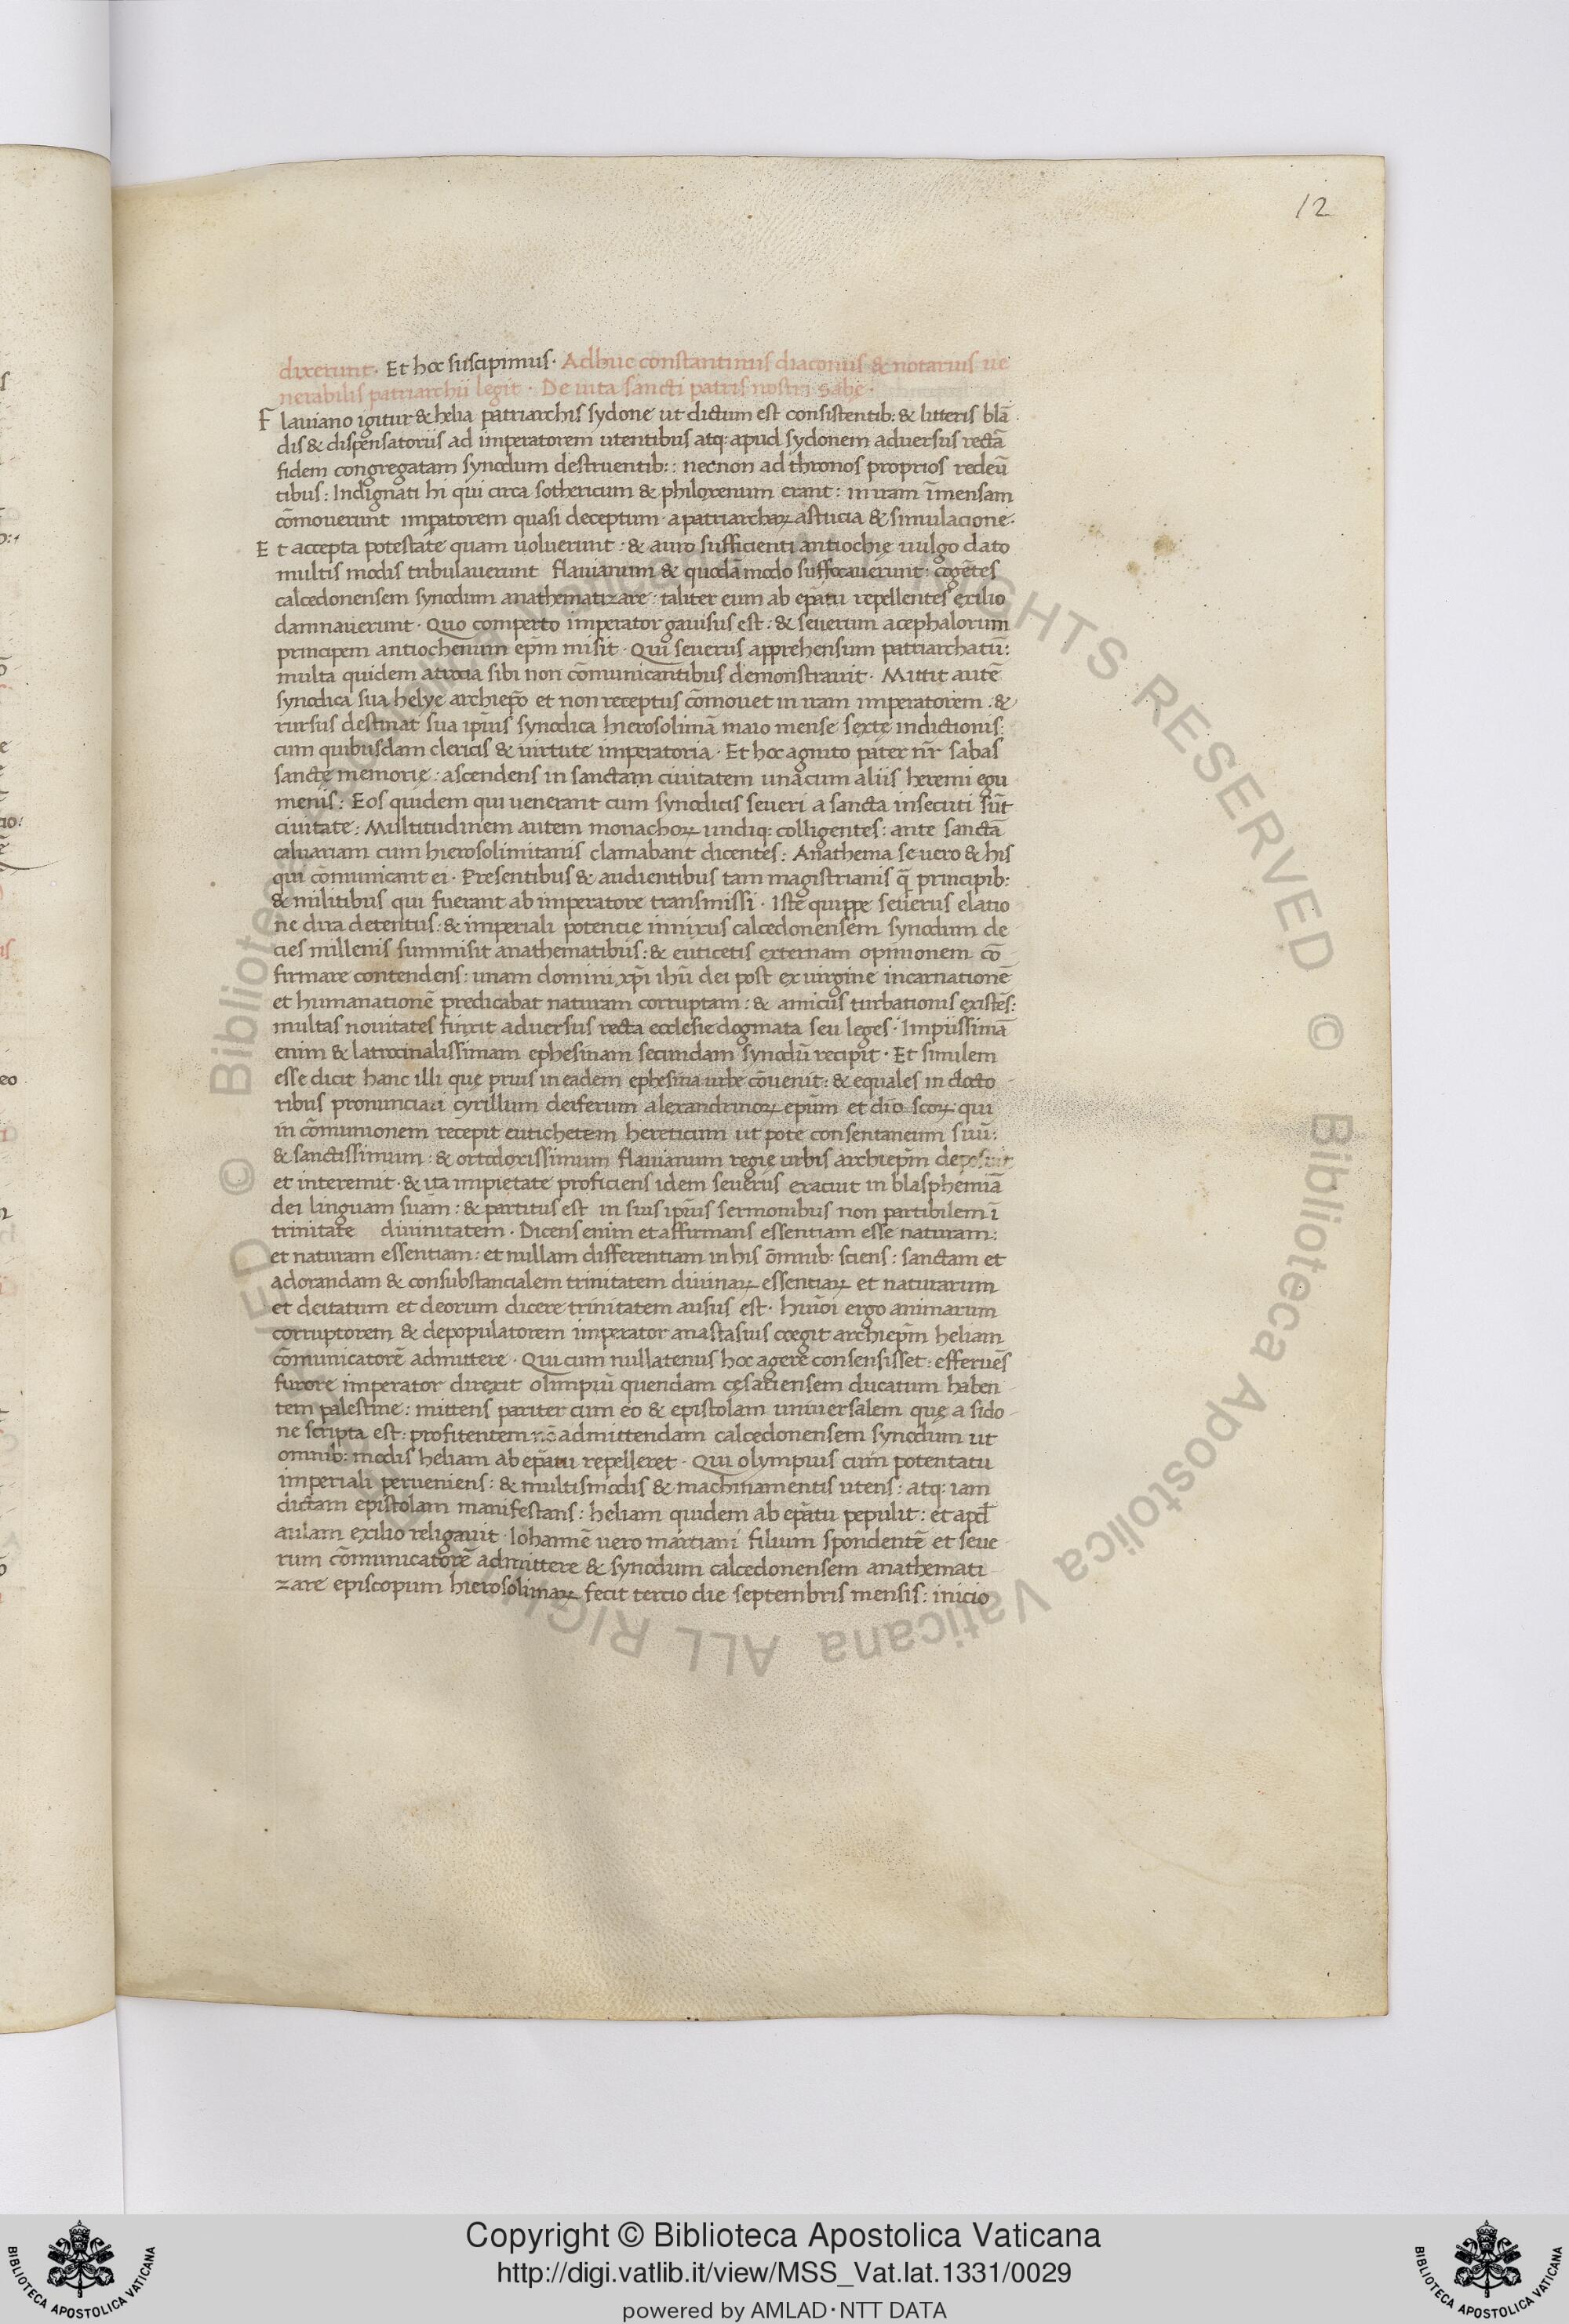 12
dixerunt· Et hoc suscipimus· Adhuc constantinus diaconus & notarius ue
nerabilis patriarchii legit· De uita sancti patris nostri Sabe·
Flauiano igitur & helia patriarchis sydone ut dictum est consistentib: & litteris blā
dis & dispensatoriis ad imperatorem utentibus atq: apud sydonem aduersus rectā
fidem congregatam synodum destruentib:: necnon ad thronos proprios redeū
tibus: Indignati hi qui circa sothericum & philoxenum erant: in iram īmensam
cōmouerunt impatorem quasi deceptum· a patriarchaꝝ astucia & simulacione·
Et accepta potestate quam uoluerunt: & auro sufficienti antiochię uulgo dato
multis modis tribulauerunt flauianum & quodāmodo suffocauerunt· cogētes
calcedonensem synodum anathematizare: taliter eum ab ep̄atu repellentes exilio
damnauerunt· Quo comperto imperator gauisus est: & seuerum acephalorum
principem antiochenum ep̄m misit· Qui seuerus apprehensum patriarchatū:
multa quidem atrocia sibi non cōmunicantibus demonstrauit· Mittit autē
synodica sua helye archiep̄o et non receptus cōmouet in iram imperatorem: &
rursus destinat sua ip̄ius synodica hierosolimā maio mense sextę indictionis:
cum quibusdam clericis & uirtute imperatoria· Et hoc agnito pater nr̄ sabas
sanctę memorię: ascendens in sanctam ciuitatem una cum aliis heremi egu
menis: Eos quidem qui uenerant cum synodicis seueri a sancta insecuti sūt
ciuitate: Multitudinem autem monachoꝝ undiq: colligentes: ante sanctā
caluariam cum hierosolimitanis clamabant dicentes: Anathema seuero & his
qui cōmunicant ei· Presentibus & audientibus tam magistrianis q̄ principib:
& militibus qui fuerant ab imperatore transmissi· Iste quippe seuerus elatio
ne dira detentus: & imperiali potencie innixus calcedonensem synodum de
cies millenis summisit anathematibus: & euticetis externam opinionem cō
firmare contendens: unam domini xp̄i ihū dei post ex uirgine incarnationē
et humanationē predicabat naturam corruptam: & amicus turbationis existēs:
multas nouitates finxit aduersus recta ecclesie dogmata seu leges· Impiissimā
enim & latrocinalissimam ephesinam secundam synodū recipit· Et similem
esse dicit hanc illi quę prius in eadem ephesina urbe cōuenit: & equales in docto
ribus pronunciari cyrillum deiferum alexandrinoꝝ ep̄m et dioscoꝝ: qui
in cōmunionem recepit eutichetem hereticum ut pote consentaneum suū:
& sanctissimum: & ortodoxissimum flauianum regię urbis archiep̄m deposuit
et interemit· & ita impietate proficiens idem seuerus exacuit in blasphemiā
dei linguam suam: & partitus est in suis ip̄ius sermonibus non partibilem ī
trinitate diuinitatem· Dicens enim et affirmans essentiam esse naturam:
et naturam essentiam: et nullam differentiam in his ōmnib: sciens: sanctam et
adorandam & consubstancialem trinitatem diuinaꝝ essentiaꝝ et naturarum
et deitatum et deorum dicere trinitatem ausus est· hui̅oi ergo animarum
corruptorem & depopulatorem imperator anastasius coegit archiep̄m heliam
cōmunicatorē admittere· Qui cum nullatenus hoc agere consensisset: efferuēs
furore imperator direxit olimpiū quendam cęsariensem ducatum haben
tem palestine: mittens pariter cum eo & epistolam uniuersalem quę a sido
ne scripta est: profitentem nō admittendam calcedonensem synodum ut
omnib: modis heliam ab ep̄atu repelleret· Qui olympius cum potentatu
imperiali perueniens: & multismodis & machinamentis utens: atq: iam
dictam epistolam manifestans: heliam quidem ab ep̄atu pepulit: et apđ
aulam exilio religauit· Iohannē uero martiani filium spondentē et seue
rum cōmunicatorē admittere & synodum calcedonensem anathemati
zare episcopum hierosolimaꝝ fecit tercio die septembris mensis: inicio
© Biblioteca Apostolica Vaticana ALL RIGHTS RESERVED © Biblioteca Apostolica Vaticana ALL RIGHTS RESERVED
Copyright © Biblioteca Apostolica Vaticana
http://digi.vatlib.it/view/MSS_Vat.lat.1331/0029
powered by AMLAD·NTT DATA
BIBLIOTECA APOSTOLICA VATICANA
BIBLIOTECA APOSTOLICA VATICANA